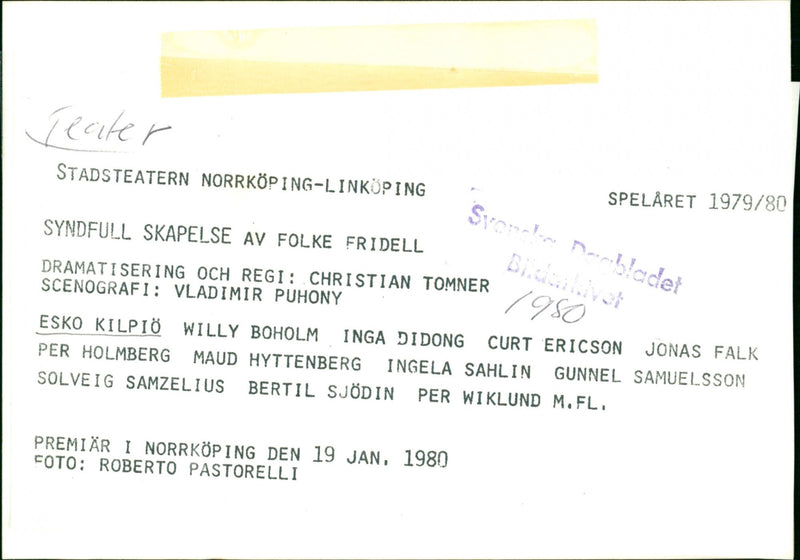 Teater
STADSTEATERN NORRKÖPING-LINKÖPING
SPELÅRET 1979/80
SYNDFULL SKAPELSE AV FOLKE FRIDELL
Svenska Dagbladet
Bildarkivet
1980
DRAMATISERING OCH REGI: CHRISTIAN TOMNER
SCENOGRAFI: VLADIMIR PUHONY
ESKO KILPIÖ WILLY BOHOLM INGA DIDONG CURT ERICSON JONAS FALK
PER HOLMBERG MAUD HYTTENBERG INGELA SAHLIN GUNNEL SAMUELSSON
SOLVEIG SAMZELIUS BERTIL SJÖDIN PER WIKLUND M.FL.
PREMIÄR I NORRKÖPING DEN 19 JAN. 1980
FOTO: ROBERTO PASTORELLI